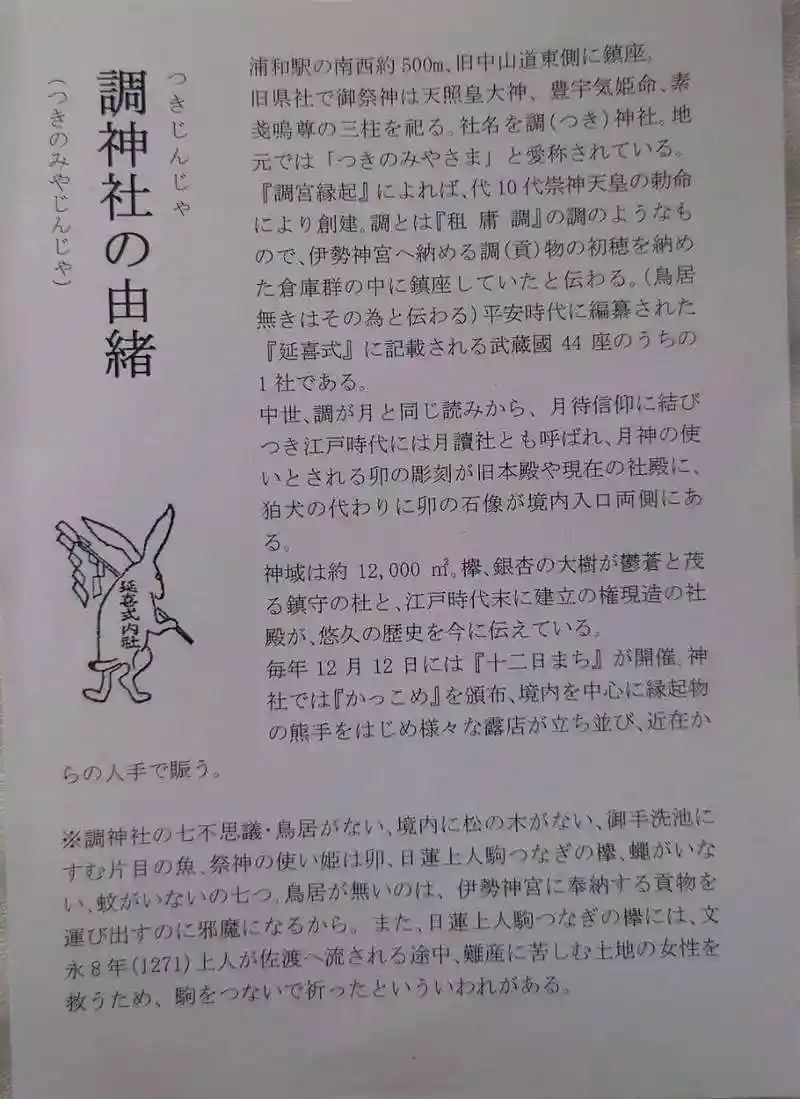 つきじんじゃ
調神社の由緒
（つきのみやじんじゃ）
浦和駅の南西約500m、旧中山道東側に鎮座。
旧県社で御祭神は天照皇大神、豊宇気姫命、素
戔嗚尊の三柱を祀る。社名を調(つき)神社。地
元では「つきのみやさま」と愛称されている。
『調宮縁起』によれば、代10代崇神天皇の勅命
により創建。調とは『租 庸 調』の調のようなも
ので、伊勢神宮へ納める調(貢)物の初穂を納め
た倉庫群の中に鎮座していたと伝わる。(鳥居
無きはその為と伝わる)平安時代に編纂された
『延喜式』に記載される武蔵國 44 座のうちの
1社である。
中世、調が月と同じ読みから、月待信仰に結び
つき江戸時代には月讀社とも呼ばれ、月神の使
いとされる卯の彫刻が旧本殿や現在の社殿に、
狛犬の代わりに卯の石像が境内入口両側にあ
る。
神域は約 12,000 ㎡。欅、銀杏の大樹が鬱蒼と茂
る鎮守の杜と、江戸時代末に建立の権現造の社
殿が、悠久の歴史を今に伝えている。
毎年12月12日には『十二日まち』が開催。神
社では『かっこめ』を頒布、境内を中心に縁起物
の熊手をはじめ様々な露店が立ち並び、近在か
らの人手で賑う。
延喜式内社
※調神社の七不思議・鳥居がない、境内に松の木がない、御手洗池に
すむ片目の魚、祭神の使い姫は卯、日蓮上人駒つなぎの欅、蠅がいな
い、蚊がいないの七つ。鳥居が無いのは、伊勢神宮に奉納する貢物を
運び出すのに邪魔になるから。また、日蓮上人駒つなぎの欅には、文
永8年(1271)上人が佐渡へ流される途中、難産に苦しむ土地の女性を
救うため、駒をつないで祈ったといういわれがある。